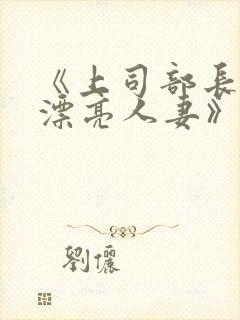 《上司部長
漂亮人妻》
劉儷